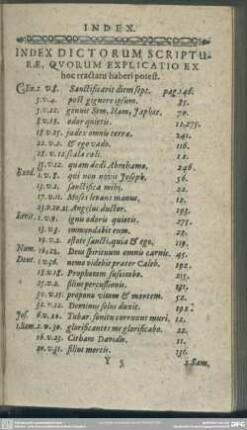 INDEX.
INDEX DICTORUM SCRIPTU-
RÆ, QVORUM EXPLICATIO EX
hoc tractatu haberi potest.
Gen. 2. v. 3. Sanctificavit diem sept. pag. 146.
5. v. 4. post genuere ipsum. 85.
5. v. 32. genuit Sem, Ham, Japhet. 70.
8. v. 21. odor quietis. 11, 275.
18. v. 25. judex omnis terræ. 241.
22. v. 2. & ego vado. 116.
28. v. 12. scala cœli. 12.
35. v. 12. quam dedi Abrahamo. 246.
Exod. 1. v. 8. qui non novit Joseph. 56.
13. v. 2. sanctifica mihi. 22.
17. v. 11. Moses levans manus. 12.
23. v. 20. 21. Angelus ductor. 195.
Levit. 1. v. 9. ignis odoris quietis. 275.
13. v. 3. immundabit eum. 28.
19. v. 2. estote sancti, quia & ego. 119.
Num. 16. 22. Deus spirituum omnis carnis. 45.
Deut. 1. v. 36. nemo videbit præter Caleb. 192.
18. v. 18. Prophetam suscitabo. 235.
25. v. 2. filius percussionis. 231.
30. v. 15. proposui vitam & mortem. 52.
32. v. 12. Dominus solus duxit. 192.
Jos. 6. v. 20. Tubar. sonitu corruunt muri. 12.
1. Sam. 2. v. 30. glorificantes me glorificabo. 22.
16. v. 23. Cithara Davidis. 11.
20. v. 31. filius mortis. 231.
Y 3
2. Sam.